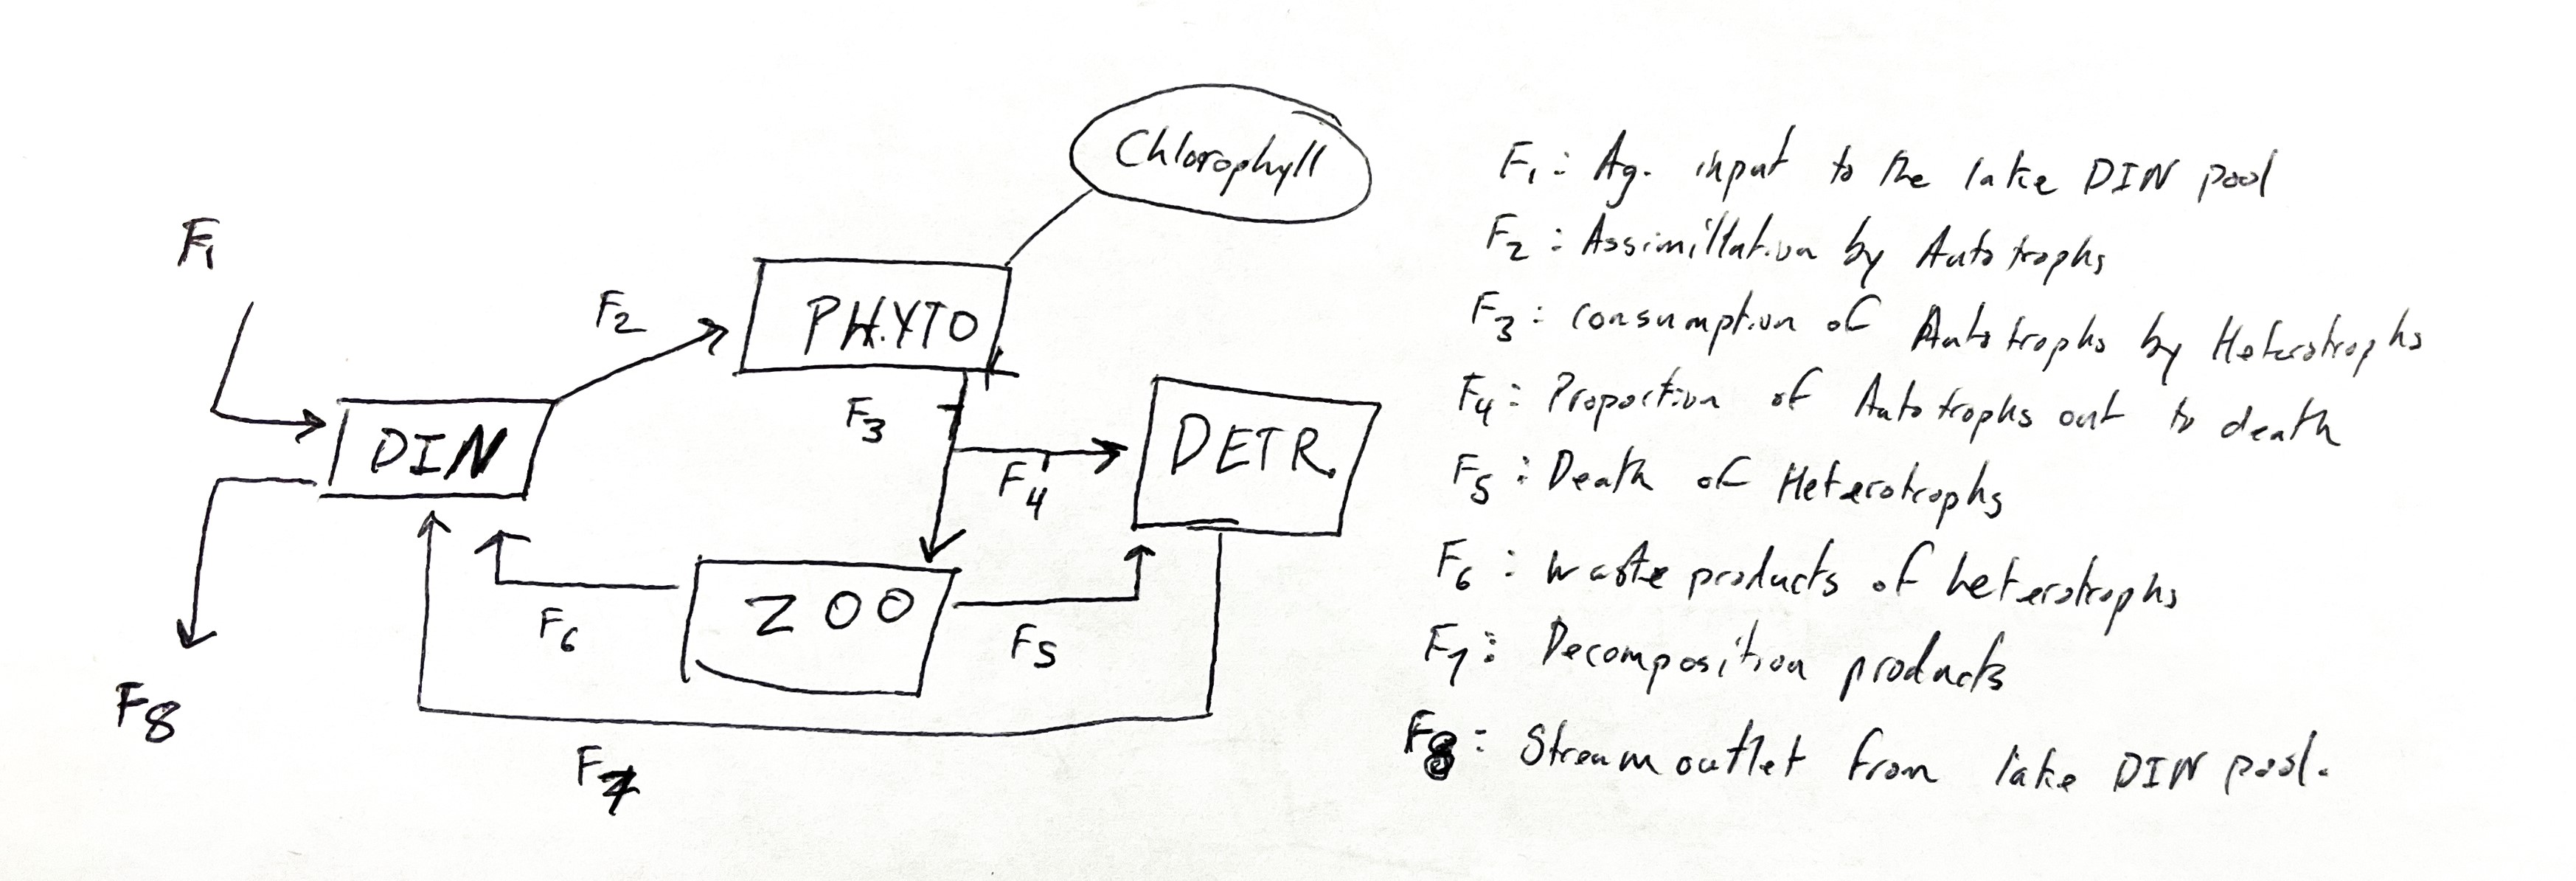 Chlorophyll
F1
F2
PHYTO
F3
DIN
F4
DETR.
ZOO
F6
F5
F8
F7
F1: Ag. input to the lake DIN pool
F2: Assimillation by Autotrophs
F3: consumption of Autotrophs by Heterotrophs
F4: Proportion of Autotrophs out to death
F5: Death of Heterotrophs
F6: Waste products of heterotrophs
F7: Decomposition products
F8: Stream outlet from lake DIN pool.